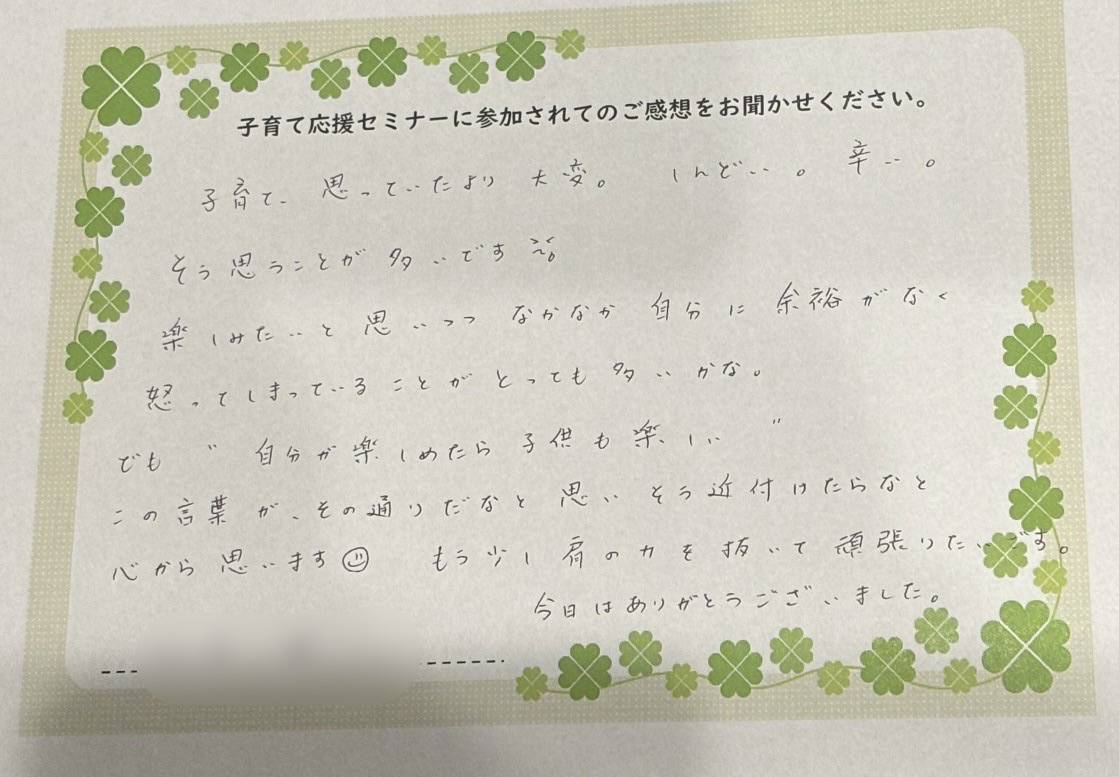 子育て応援セミナーに参加されてのご感想をお聞かせください。
子育て、思っていたより 大変。 しんどい。 辛い。
そう思うことが 多いです
楽しみたいと 思いつつ なかなか 自分に 余裕がなく
怒ってしまっていることが とっても 多いかな。
でも " 自分が楽しめたら 子供も楽しい "
この言葉が、その通りだなと 思い そう近付けたらなと
心から思います☺ もう少し 肩の力を抜いて 頑張りたいです。
今日はありがとうございました。